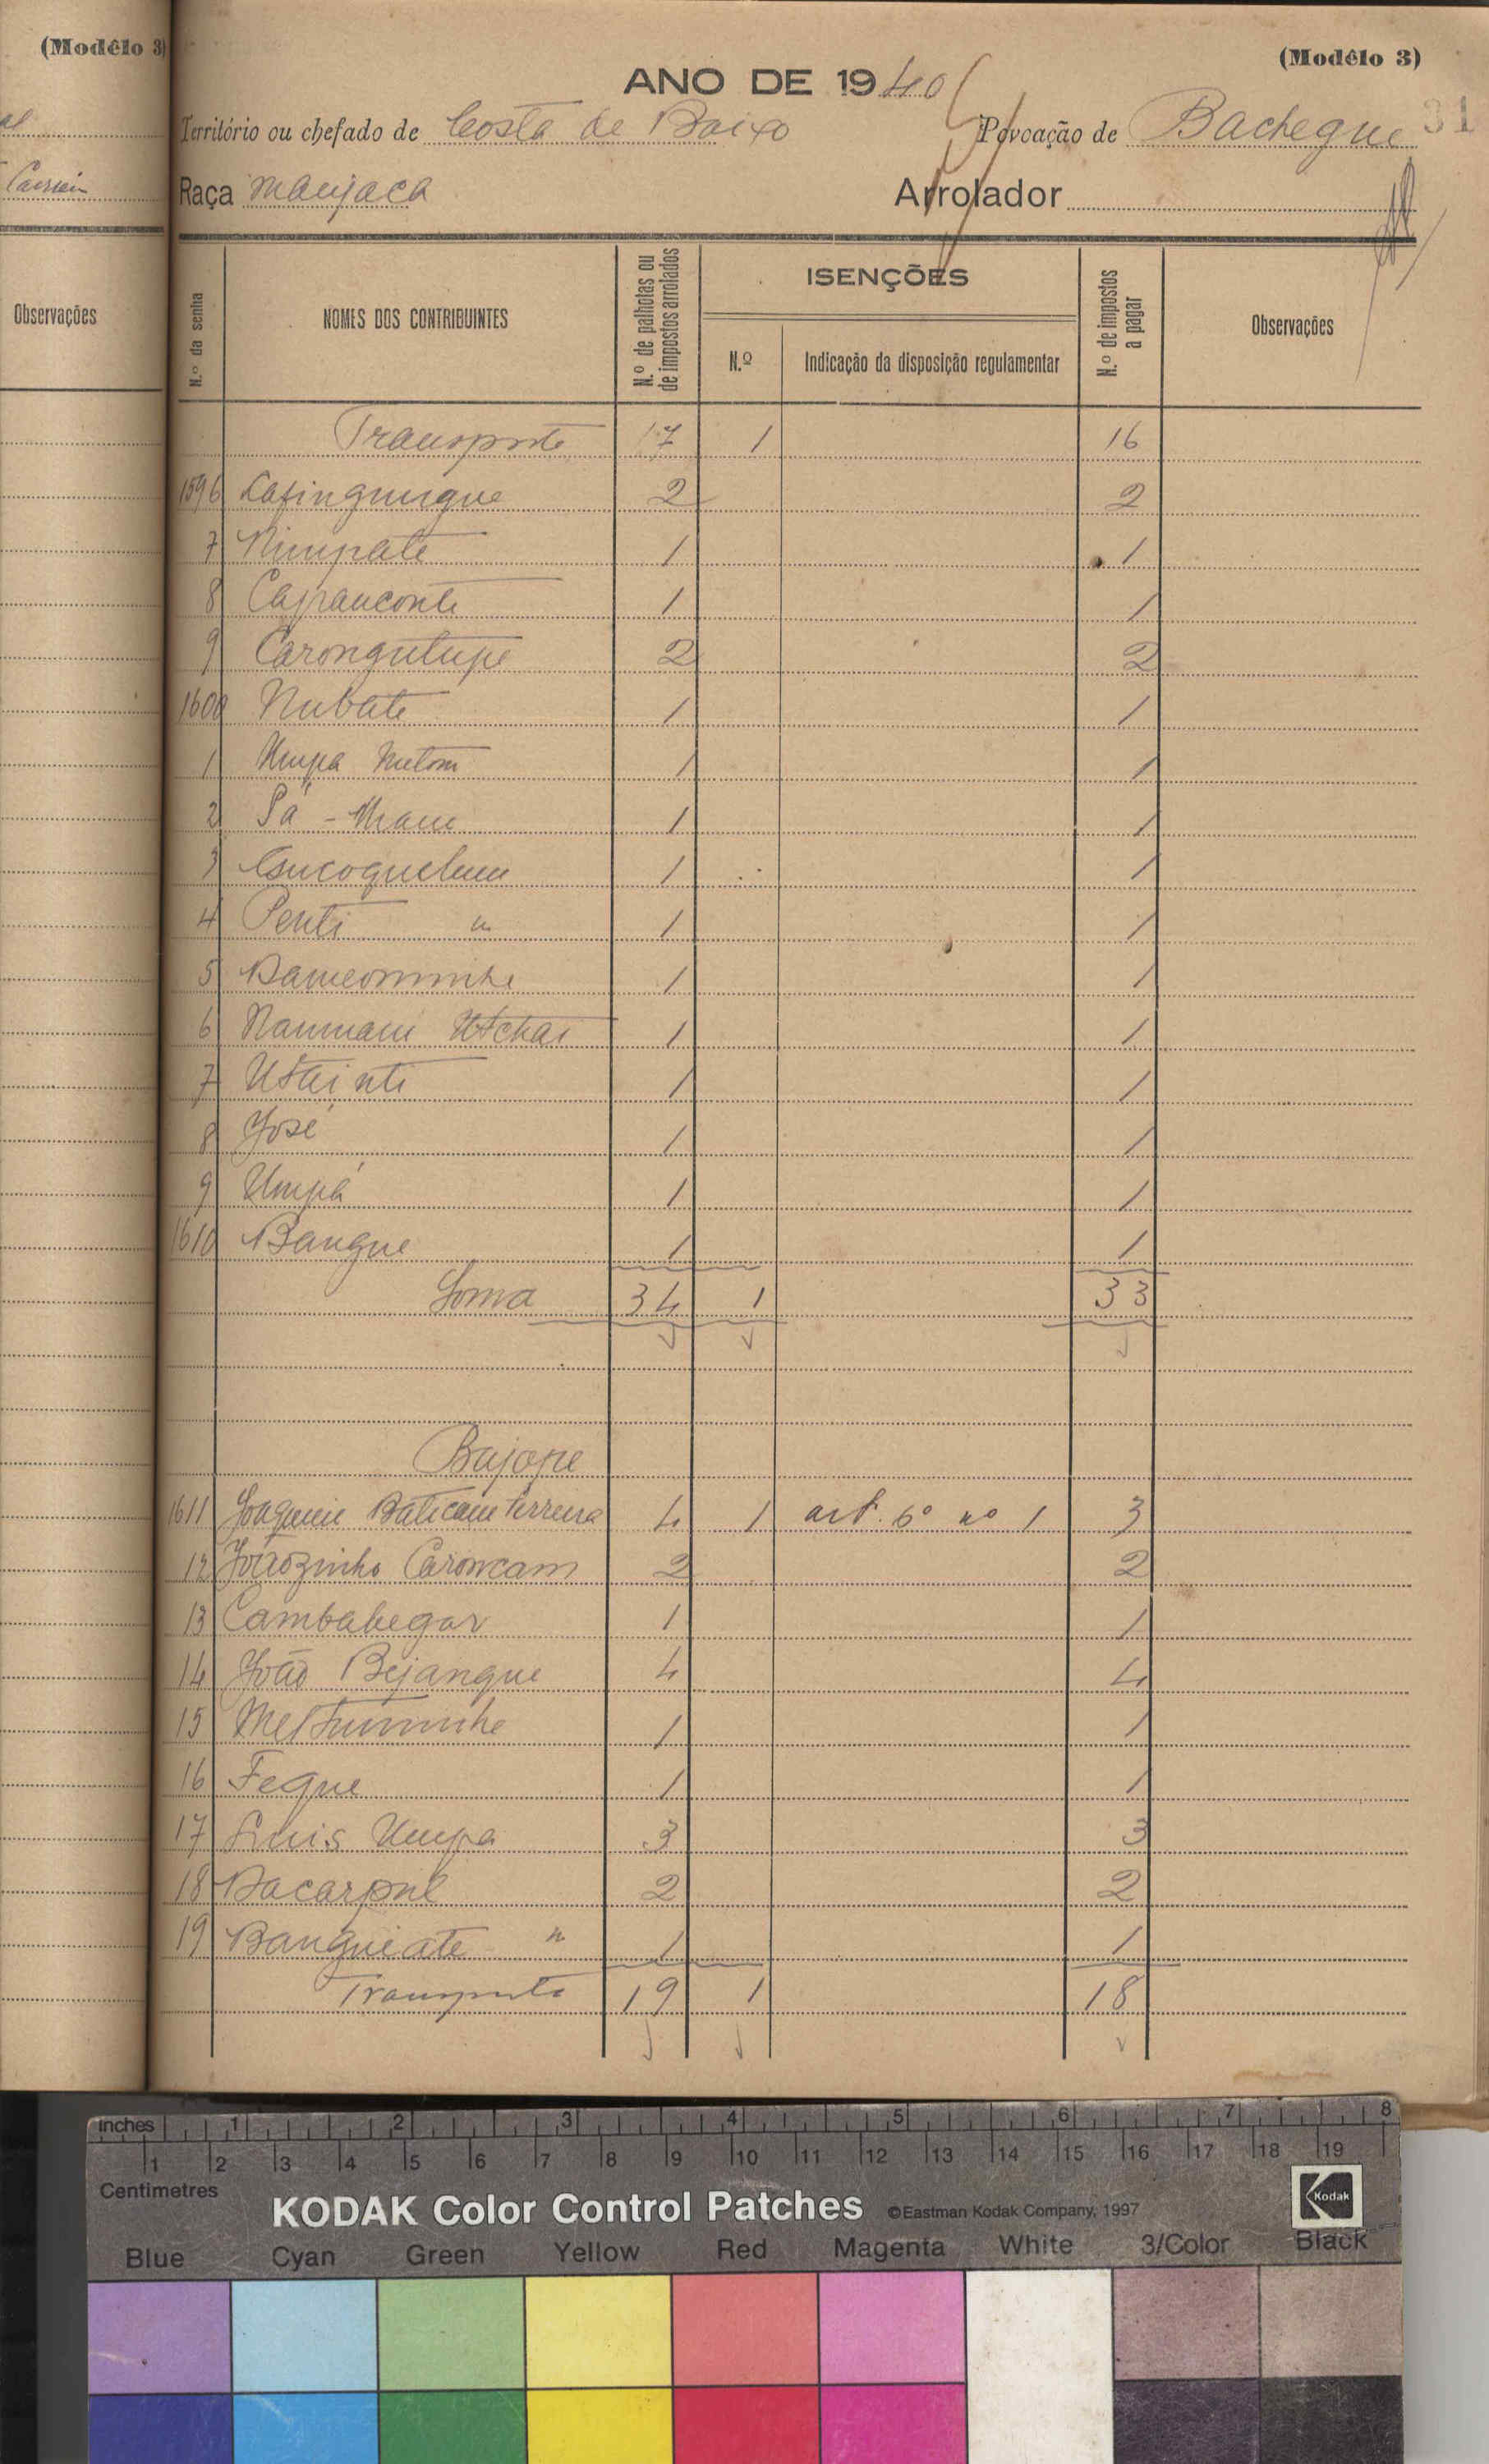 (Modêlo 3)
Observações
(Modêlo 3)
31
ANO DE 1940
Território ou chefado de Costa de Baixo Povoação de Bachegue
Raça manjaca Arrolador
N.º da senha NOMES DOS CONTRIBUINTES N.º de palhotas ou de impostos arrolados ISENÇÕES N.º de impostos a pagar Observações
N.º Indicação da disposição regulamentar
Transporte 17 1 16
1596 2 2
7 Nimpate 1 1
8 Capanconte 1 1
9 Carongutupe 2 2
1600 Nubate 1 1
1 Umpa 1 1
2 1 1
3 1 1
4 Penti " 1 1
5 1 1
6 1 1
7 1 1
8 José 1 1
9 Umpá 1 1
1610 Bangue 1 1
Soma 34 1 33
Bajope
1611 Joaquim Baticam Ferreira 4 1 art. 6º nº 1 3
12 Joãozinho Caroncam 2 2
13 Cambabegar 1 1
14 João Bejangue 4 4
15 1 1
16 Feque 1 1
17 Luis Umpa 3 3
18 2 2
19 Banguiate " 1 1
Transporte 19 1 18
inches 1 2 3 4 5 6 7 8
1 2 3 4 5 6 7 8 9 10 11 12 13 14 15 16 17 18 19
Centimetres
KODAK Color Control Patches ©Eastman Kodak Company, 1997 Kodak
Blue Cyan Green Yellow Red Magenta White 3/Color Black